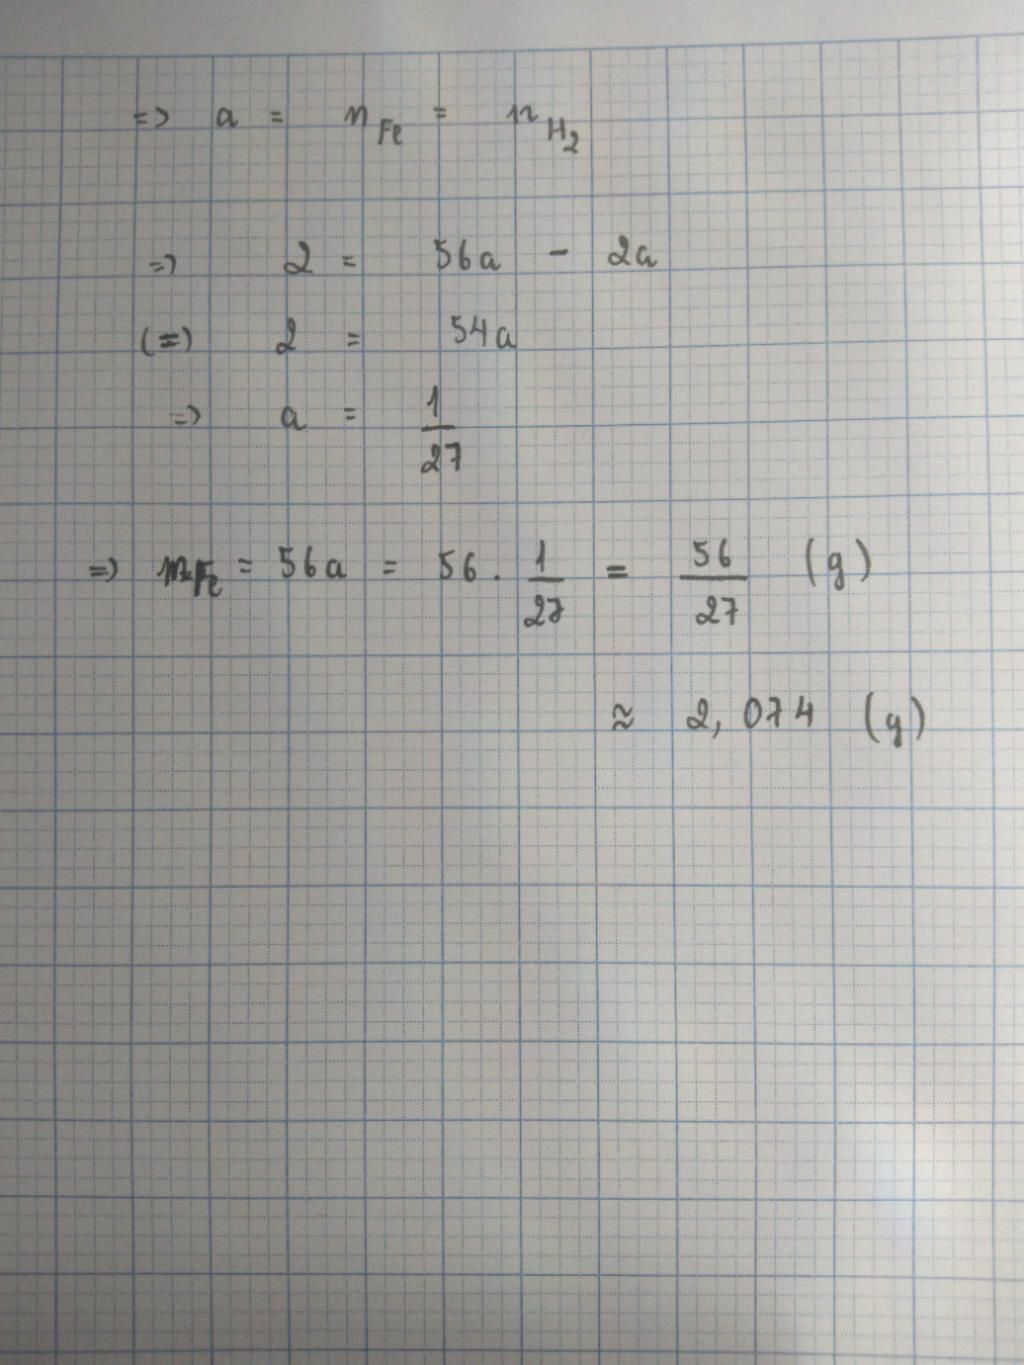 => a = n Fe = n H2
=> 2 = 56a - 2a
(=) 2 = 54a
=> a = 1/27
=> mFe = 56a = 56 . 1/27 = 56/27 (g)
≈ 2,074 (g)